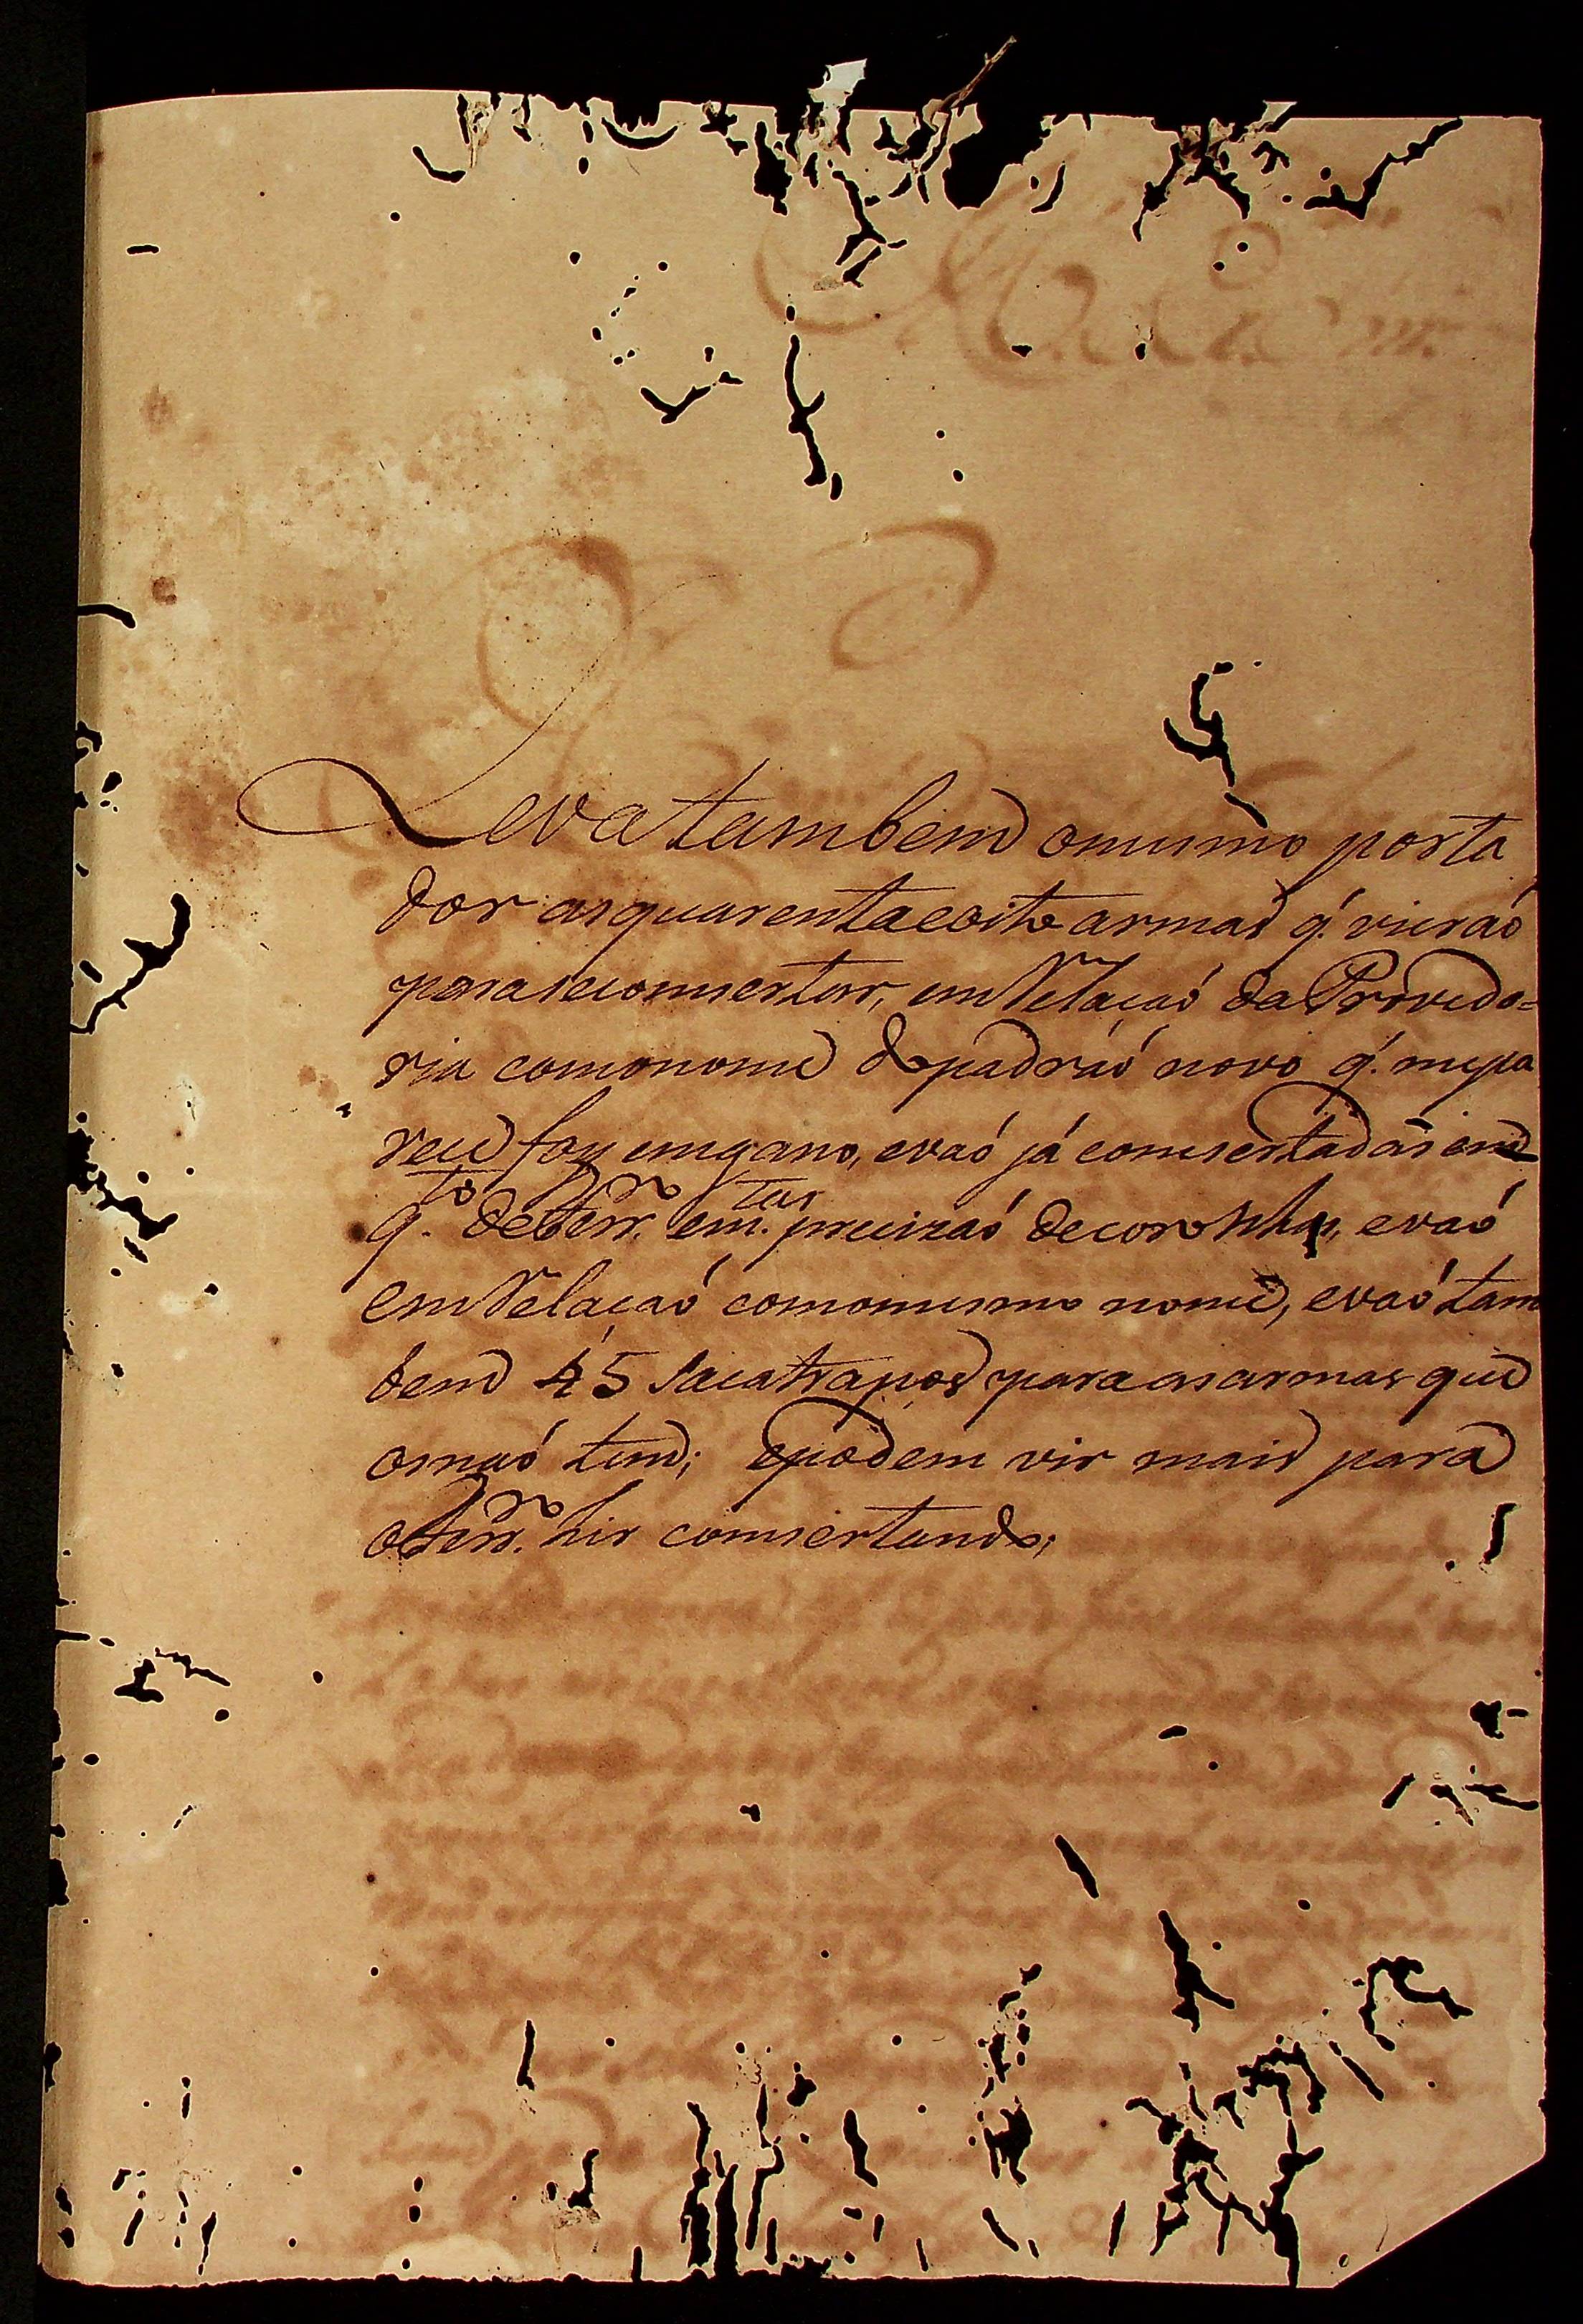 Leva tambem o mesmo porta
dor as quarenta e oito armas q. vieraó
para se comsertar, em Relaçaó da Provedo=
ria com o nome do padraó novo q. me pa
rece foy emgano, e vaó já comsertadas em
q.to de Ferr.ro e m.tas precizaó de coronha, e vaó
em Relaçaó com o mesmo nome, e vaó tam
bem 45 Sacatrapos para as armas que
os naó tem; e podem vir mais para
o Ferr.ro hir comsertando;